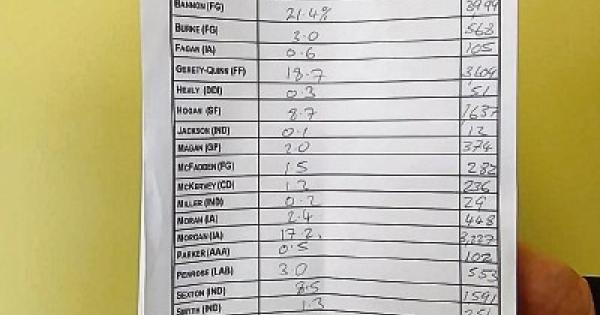 BANNON (FG) 21.4% 3999
BURKE (FG) 3.0 568
FAGAN (IA) 0.6 105
GERETY-QUINN (FF) 18.7
HEALY (DDI) 0.3 51
HOGAN (SF) 8.7 1637
JACKSON (IND) 0.1 12
MAGAN (GP) 2.0 374
MCFADDEN (FG) 1.5 282
MCKERVEY (CD) 1.3 236
MILLER (IND) 0.2 29
MORAN (IA) 2.4 448
MORGAN (IA) 17.2 3,227
PARKER (AAA) 0.5 102
PENROSE (LAB) 3.0 553
SEXTON (IND) 8.5 1591
SMITH (IND) 1.3 251